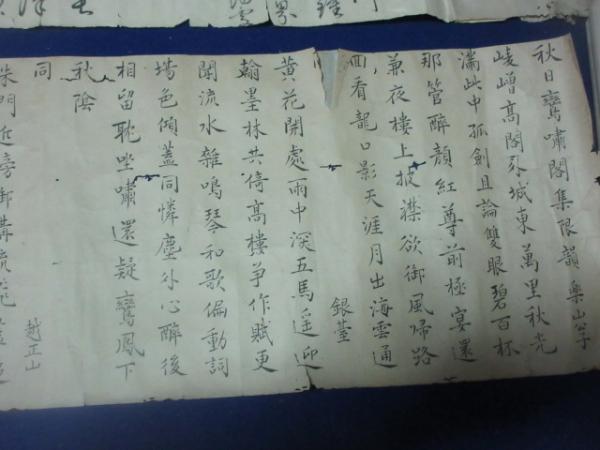 秋日鸞嘯閣集限韻 樂山
崚嶒高閣城東萬里秋光
滿此中孤劍且論雙眼碧百杯
那管醉顏紅尊前極宴還
兼夜樓上披襟欲御風帰路
回看龍口影天涯月出海雲通
銀臺
黄花開處雨中深五馬遥迎
翰墨林共倚高樓爭作賦更
聞流水雜鳴琴和歌偏動詞
塲色傾蓋同憐塵外心醉後
相留耽坐嘯還疑鸞鳳下
秋陰
同 越正山
朱門近旁御溝流